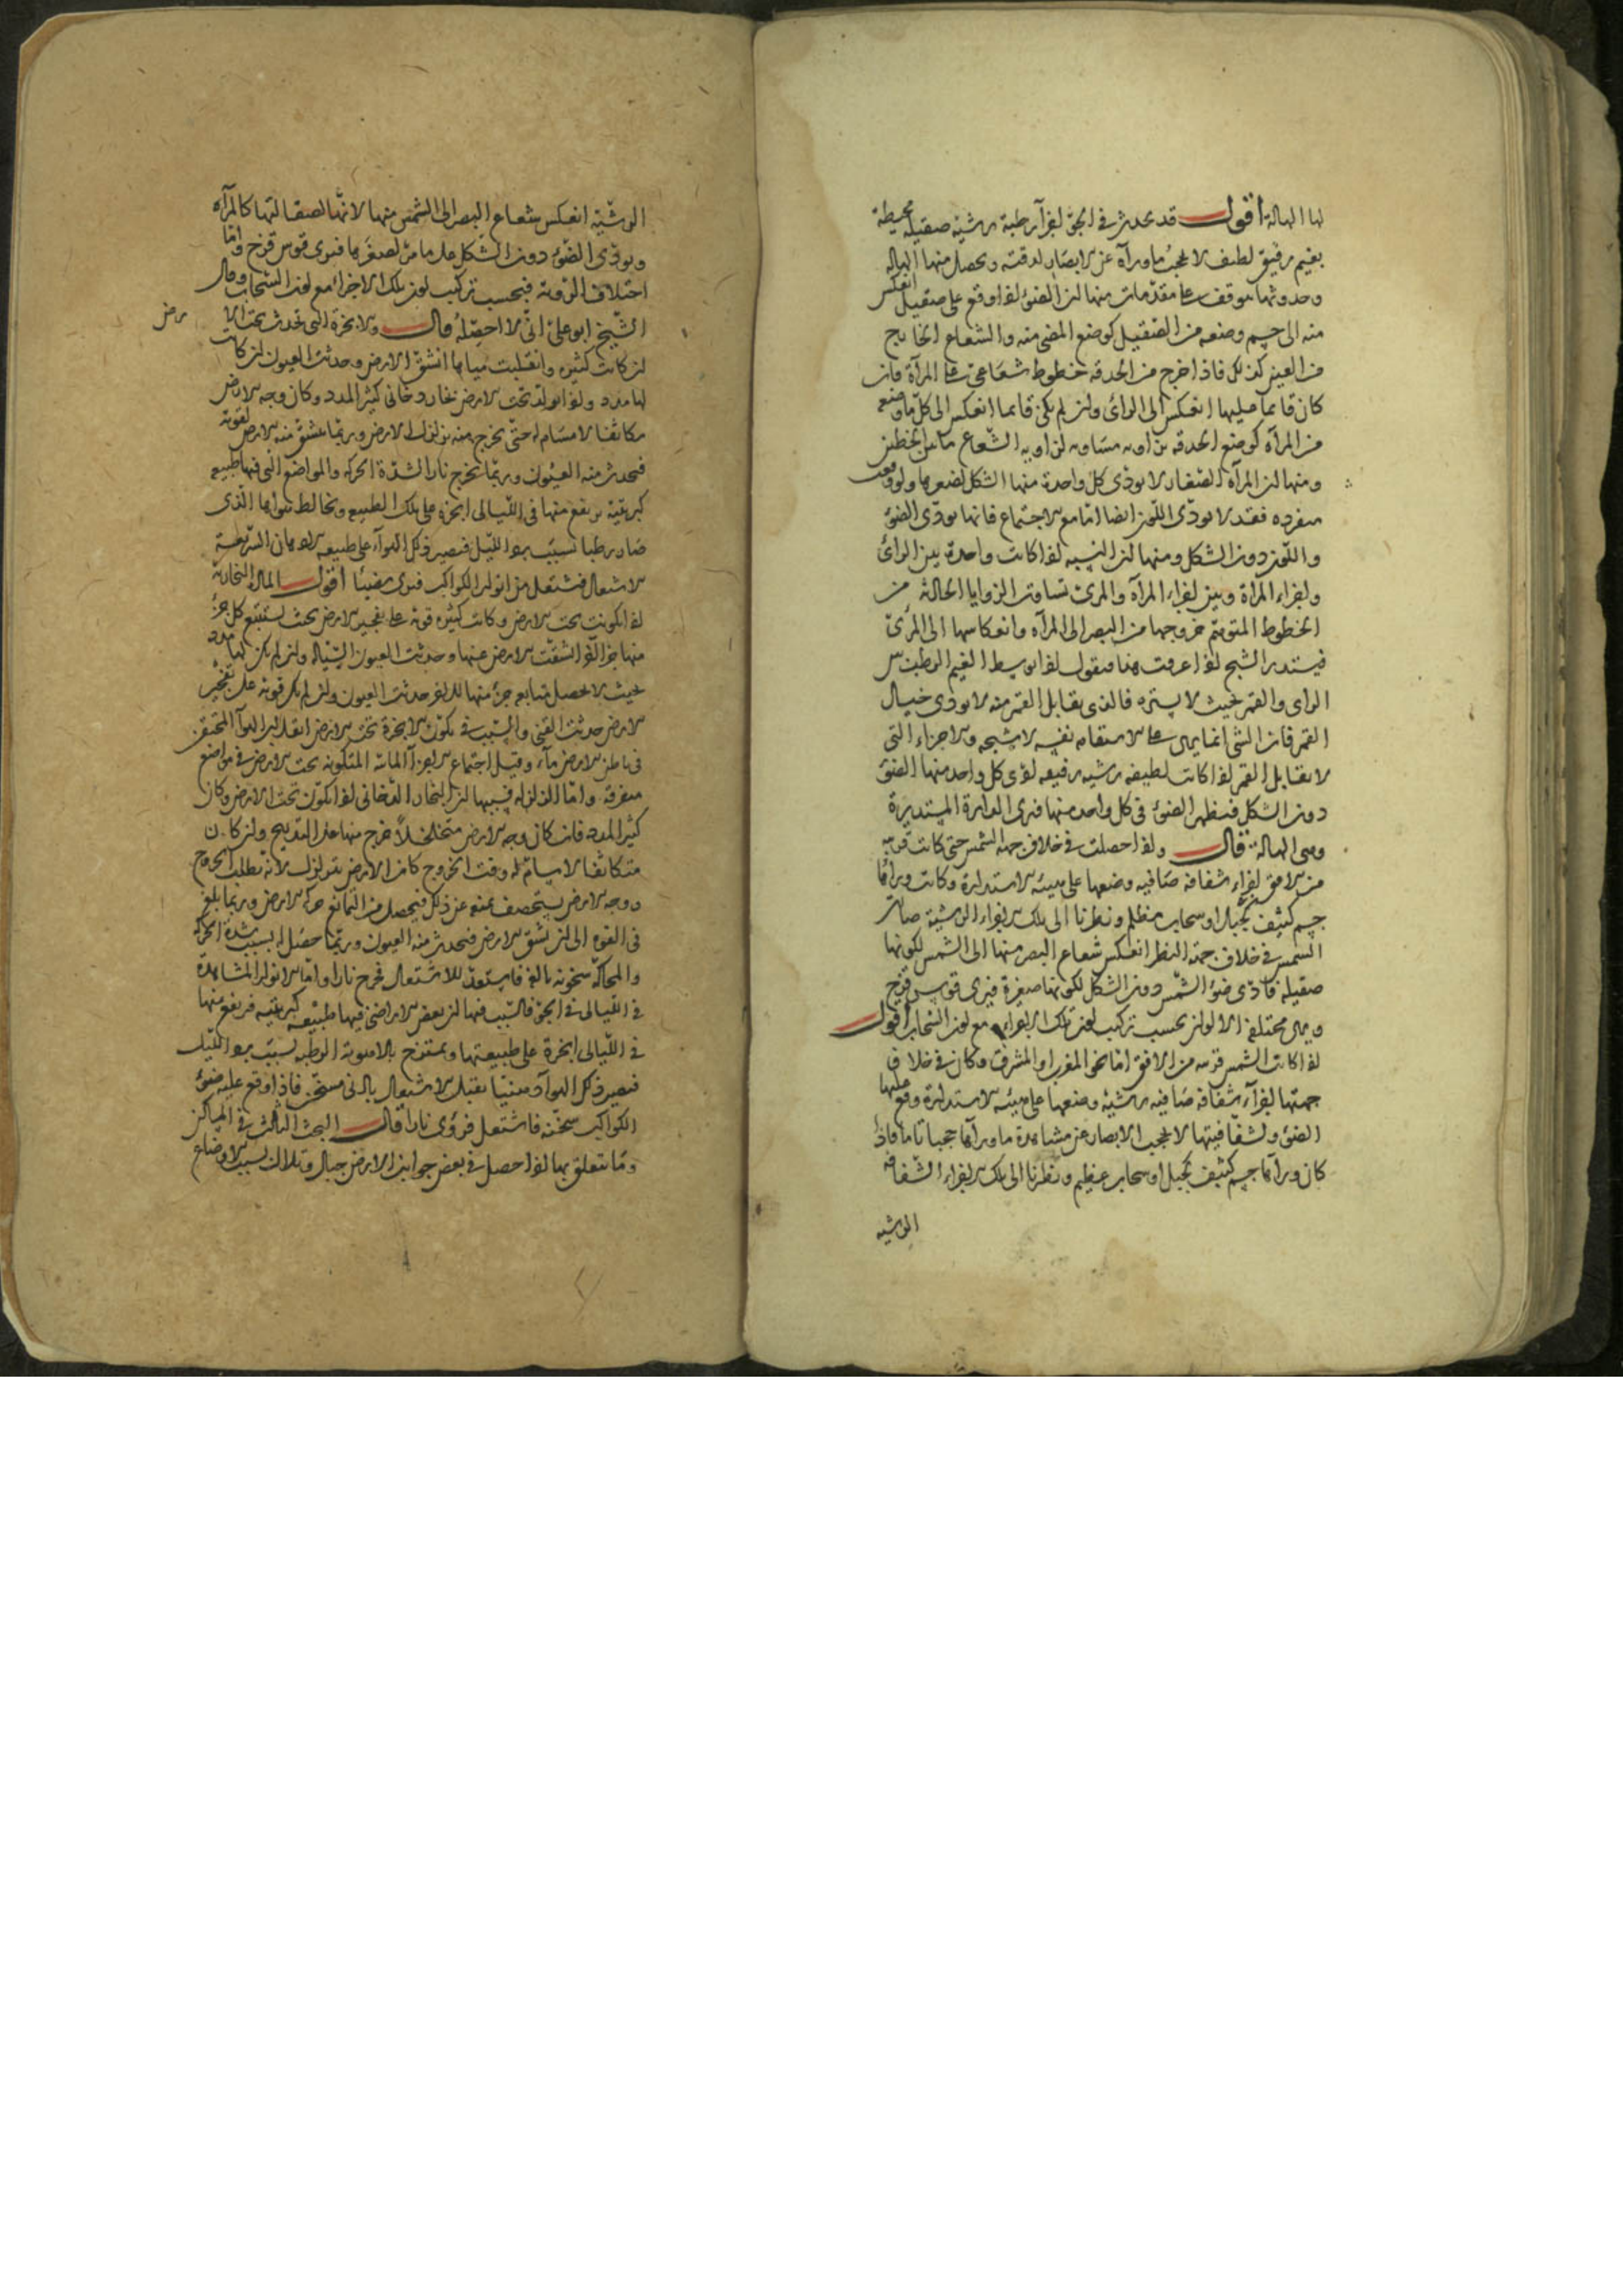 لها الهالة اقول قد يحدث في الجو اجزآء رطبة رشية صقيلة محيطة
بغيم رقيق لطيف لا يحجب ماورآه عن الابصار لرقته ويحصل منها الهاله
وحدوثها يتوقف على مقدمات منها ان الضوء اذا وقع على صقيل انعكس
منه الى جسم وضعه من الصقيل كوضع المضئ منه والشعاع الخارج
من العين كذلك فاذا خرج من الحدقه خطوط شعاعية على المرآة فان
كان قائما عليها انعكس الى الرائى وان لم يكن قائما انعكس الى كل ما وضعه
من المرآة كوضع الحدقه بزاويه مساويه لزاويه الشعاع مابين الخطين
ومنها ان المرآة الصغار لا يؤدى كل واحدة منها الشكل لصغرها ولو وقعت
منفرده فقد لا يودى اللون ايضا اما مع الاجتماع فانها يودى الضوء
واللون دون الشكل ومنها ان النسبه اذا كانت واحدة بين الرائى
واجزاء المرآة وبين اجزاء المرآه والمرئ تساوت الزوايا الحادثه من
الخطوط المتوهم خروجها من البصر الى المرآه وانعكاسها الى المرئ
فيستدير الشبح اذا عرفت هذا فنقول اذا توسط الغيم الرطب بين
الراى والقمر بحيث لا يستره فالذى يقابل القمر منه لا يودى خيال
القمر فان الشئ انما يرى على الاستقامه نفسه لا شبحه والاجزاء التى
لا يقابل القمر اذا كانت لطيفه رشيه رقيقه ادى كل واحد منها الضوء
دون الشكل فيظهر الضوء في كل واحد منها فترى الدايرة المستديرة
وهى الهالة قال واذا حصلت في خلاف جهة الشمس حتى كانت قريبه
من الافق اجزاء شفافه صافيه وضعها على هيئه الاستداره وكانت ورآءها
جسم كثيف كجبل او سحاب مظلم ونظرنا الى تلك الاجزاء الرشية صار
الشمس في خلاف جهة النظر انعكس شعاع البصر منها الى الشمس لكونها
صقيله فادى ضوء الشمس دون الشكل لكونها صغيرة فيرى قوس قزح
ويرى مختلف الالوان بحسب تركيب لون تلك الاجزاء مع لون السحاب اقول
اذا كانت الشمس قريبه من الافق اما نحو المغرب او المشرق وكان في خلاف
جهتها اجزآء شفافة صافيه رشيه وضعها على هيئه الاستدارة وقع عليها
الضوء ولشفافيتها لا يحجب الابصار عن مشاهدة ماورآها حجبا تاما فاذا
كان ورآءها جسم كثيف كجبل او سحاب عظيم ونظرنا الى تلك الاجزاء الشفافه
الرشيه
الرشية انعكس شعاع البصر الى الشمس منها لانها لصقالتها كالمرآة
ويودى الضوء دون الشكل على ما مر لصغرها فيرى قوس قزح واما
اختلاف الوانه فبحسب تركيب لون تلك الاجزاء مع لون السحاب وقال
الشيخ ابو على انى لا احصله قال والابخرة التى تحدث تحت الا
رض
ان كانت كثيره وانقلبت مياها انشق الارض وحدثت العيون ان كانت
لها مدد واذا تولد تحت الارض بخار دخانى كثير المدد وكان وجه الارض
متكاثفا لا مسام له حتى يخرج منه تزلزلت الارض وربما ينشق منه الارض لقوته
فيحدث منه العيون وربما يخرج نار لشدة الحركة والمواضع التى فيها طبيعه
كبريتية يرتفع منها في الليالى ابخرة على تلك الطبيعه ويخالط بهوائها الذى
صار رطبا بسبب برد الليل فيصير ذلك الهوآء على طبيعه الادهان السريعة
الاشتعال فيشتعل من انوار الكواكب فيرى مضيئا اقول المادة البخارية
اذا تكونت تحت الارض وكانت كثيره قوية على تفجير الارض بحيث يستتبع كل جزء
منها جزءآ آخر انشقت الارض عنها وحدثت العيون السياله وان لم يكن لها مدد
بحيث لا يحصل متابعه جزء منها للاخر حدثت العيون وان لم يكن قوية على تفجير
الارض حدثت القنى والسبب في تكون الابخرة تحت الارض انقلاب الهوآء المحتقن
في باطن الارض مآء وقيل اجتماع الاجزآء المائية المتكونه تحت الارض في مواضع
متفرقه واما الزلزله فسببها ان البخار الدخانى اذا تكون تحت الارض وكان
كثير المدد فان كان وجه الارض متخلخلاً خرج منها على التدريج وان كان
متكاثفا لا مسام له وقت الخروج كان الارض يتزلزل لانه يطلب الخروج
ووجه الارض يستحصف يمنعه عن ذلك فيحصل من التمانع حركة الارض وربما بلغ
في القوه الى ان يشق الارض فيحدث منه العيون وربما حصل له بسبب شدة الحركة
والمحاكة سخونه بالغه فاستعد للاشتعال فخرج نارا واما الانوار المشاهدة
في الليالى في الجو فالسبب فيها ان بعض الاراضى فيها طبيعه كبريتيه فيرتفع منها
في الليالى ابخرة على طبيعتها ويمتزج بالاهوية الرطبه بسبب برد الليل
فيصير ذلك الهوآء دهنيا يقبل الاشتعال بادنى مسخن فاذا وقع عليه ضوء
الكواكب سخنه فاشتعل فرؤى نارا قال البحث الثالث في المراكز
وما يتعلق بها اذا حصل في بعض جوانب الارض جبال وتلال بسبب الاوضاع